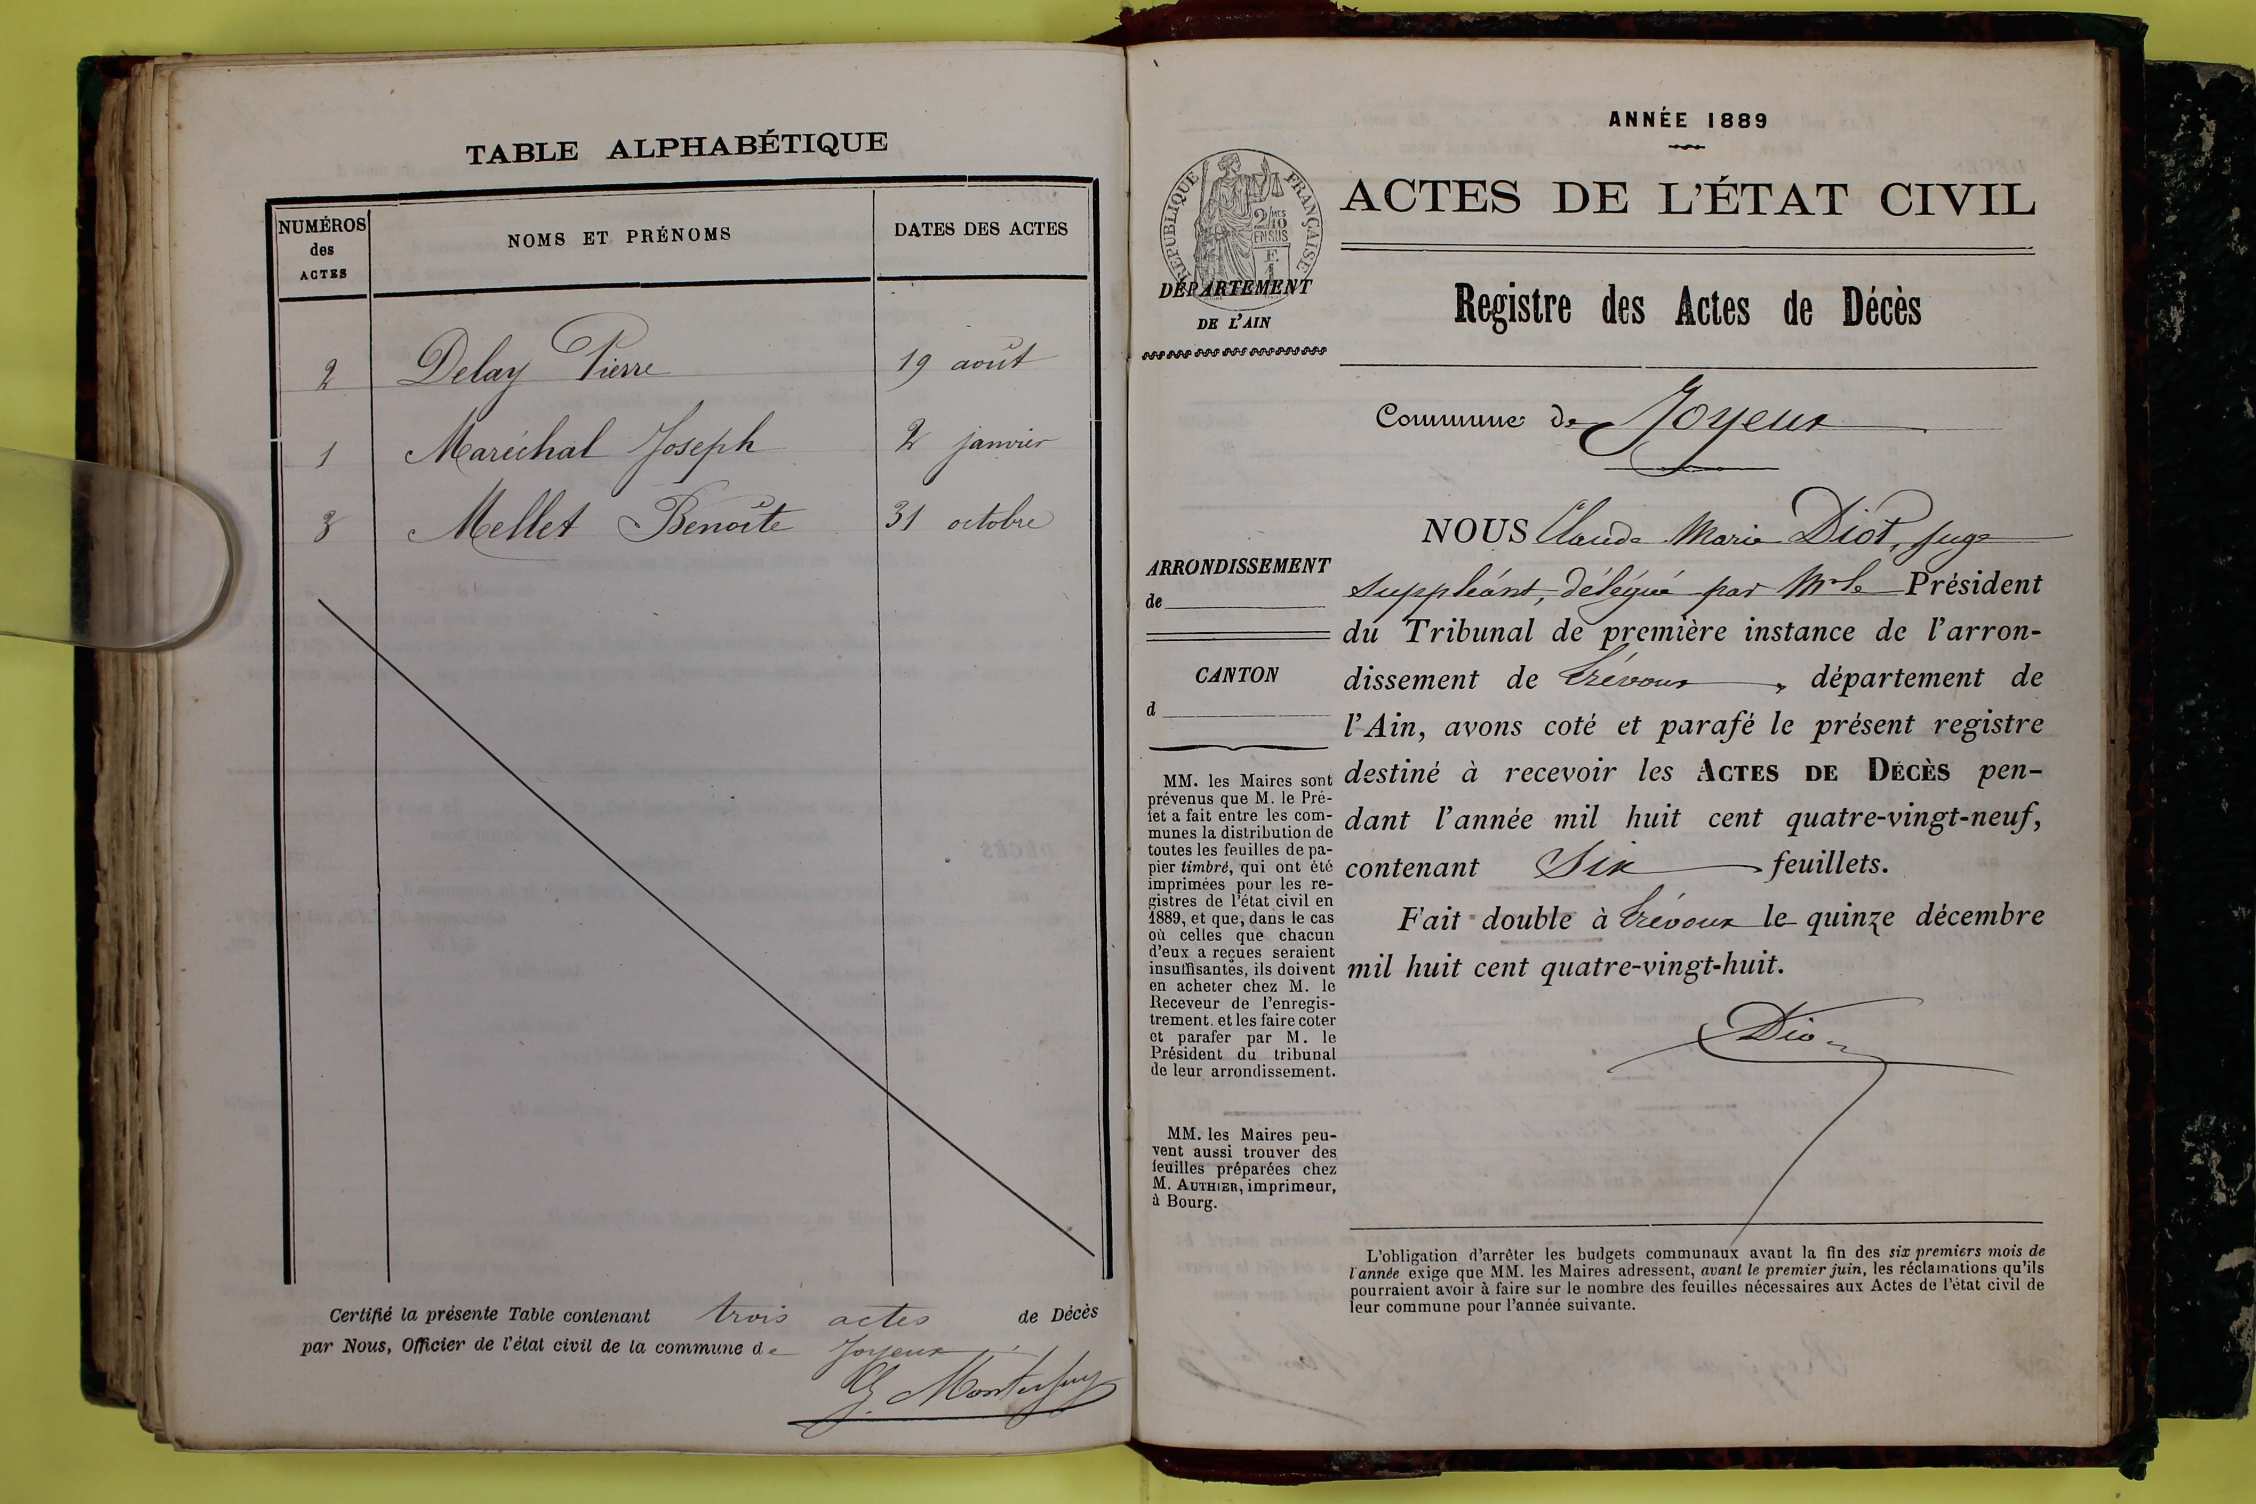 TABLE ALPHABÉTIQUE
NUMÉROS
des
ACTES
NOMS ET PRÉNOMS
DATES DES ACTES
2 Delay Pierre 19 août
1 Maréchal Joseph 2 janvier
3 Mellet Benoîte 31 octobre
Certifié la présente Table contenant trois actes de Décès
par Nous, Officier de l'état civil de la commune de Joyeux
ANNÉE 1889
ACTES DE L'ÉTAT CIVIL
RÉPUBLIQUE FRANÇAISE
2/10
EN SUS
DÉPARTEMENT
DE L'AIN
Registre des Actes de Décès
Commune de Joyeux
ARRONDISSEMENT
de
CANTON
d
MM. les Maires sont
prévenus que M. le Pré-
fet a fait entre les com-
munes la distribution de
toutes les feuilles de pa-
pier timbré, qui ont été
imprimées pour les re-
gistres de l'état civil en
1889, et que, dans le cas
où celles que chacun
d'eux a reçues seraient
insuffisantes, ils doivent
en acheter chez M. le
Receveur de l'enregis-
trement. et les faire coter
et parafer par M. le
Président du tribunal
de leur arrondissement.
MM. les Maires peu-
vent aussi trouver des
feuilles préparées chez
M. AUTHIER, imprimeur,
à Bourg.
NOUS Claude Marie Diot, juge
suppléant, délégué par Mr le Président
du Tribunal de première instance de l'arron-
dissement de Trévoux, département de
l'Ain, avons coté et parafé le présent registre
destiné à recevoir les ACTES DE DÉCÈS pen-
dant l'année mil huit cent quatre-vingt-neuf,
contenant Six feuillets.
Fait double à Trévoux le quinze décembre
mil huit cent quatre-vingt-huit.
Diot
L'obligation d'arrêter les budgets communaux avant la fin des six premiers mois de
l'année exige que MM. les Maires adressent, avant le premier juin, les réclamations qu'ils
pourraient avoir à faire sur le nombre des feuilles nécessaires aux Actes de l'état civil de
leur commune pour l'année suivante.